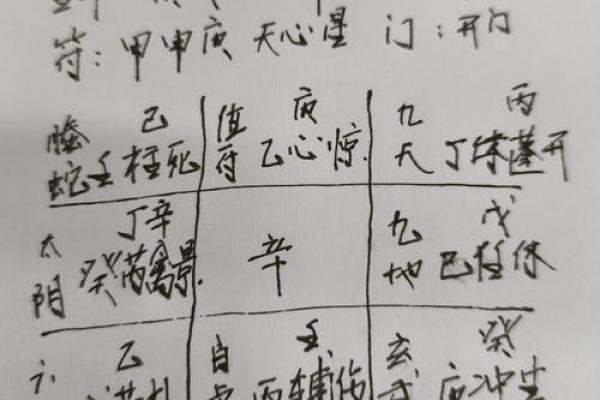 符：甲申庚 天心星 门：开门
己 值 庚 九 丙
螣蛇 壬柱死 符 乙心惊 天 丁 蓬开
太 丁辛 九 戊
阴 癸芮禽景 辛 地 己任休
六 乙 白 壬 玄 癸
丙辅伤 庚冲生